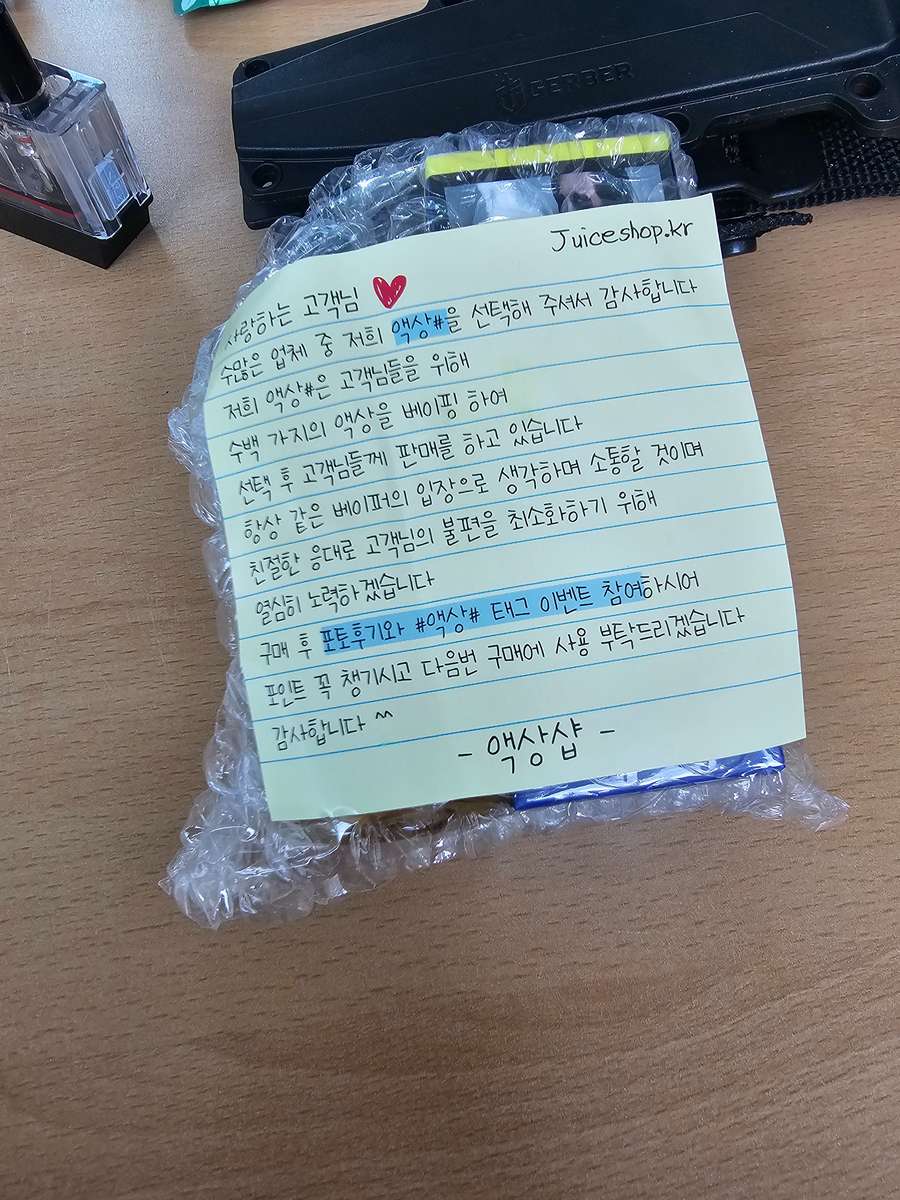 GERBER
Juiceshop.kr
사랑하는 고객님
수많은 업체 중 저희 액상#을 선택해 주셔서 감사합니다
저희 액상#은 고객님들을 위해
수백 가지의 액상을 베이핑 하여
선택 후 고객님들께 판매를 하고 있습니다
항상 같은 베이퍼의 입장으로 생각하며 소통할 것이며
친절한 응대로 고객님의 불편을 최소화하기 위해
열심히 노력하겠습니다
구매 후 포토후기와 #액상# 태그 이벤트 참여하시어
포인트 꼭 챙기시고 다음번 구매에 사용 부탁드리겠습니다
감사합니다 ^^
- 액상샵 -